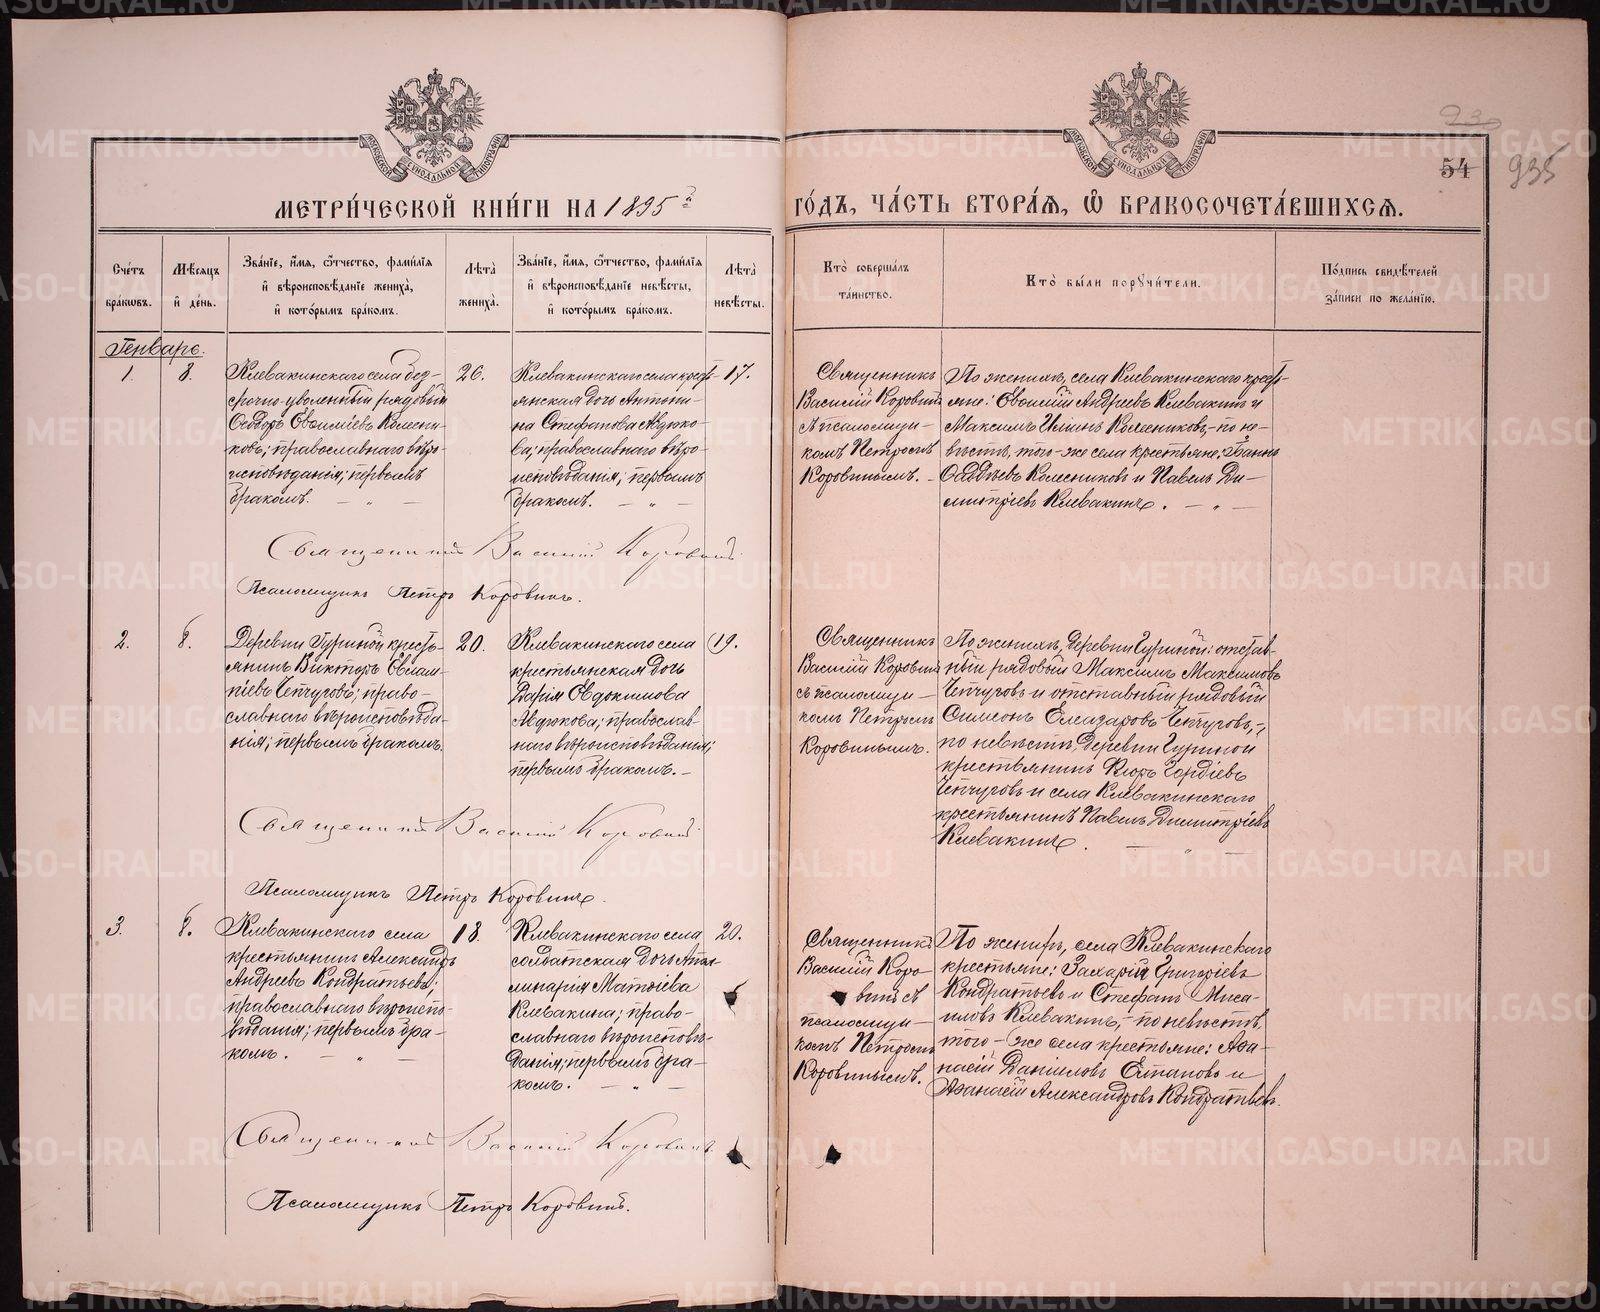 МЕТРИ́ЧЕСКОЙ КНИ́ГИ НА 1895й
ГО́ДЪ, ЧА́СТЬ ВТОРА́Я, Ѡ БРАКОСОЧЕТА́ВШИХСЯ.
54
935
Сче́тъ бра́ковъ.
Мѣ́сяцъ и де́нь.
Зва́нїе, и́мя, ѻ́тчество, фами́лїя
и҆ вѣроисповѣ́данїе жениха̀,
и҆ кото́рымъ бра́комъ.
Лѣ́та жениха̀.
Зва́нїе, и́мя, ѻ́тчество, фами́лїя
и҆ вѣроисповѣ́данїе невѣ́сты,
и҆ кото́рымъ бра́комъ.
Лѣ́та невѣ́сты.
Кто̀ соверша́лъ та́инство.
Кто̀ бы́ли порꙋчи́тели.
По́дпись свидѣ́телей
за́писи по жела́нїю.
Генварь.
1.
8.
Клевакинскаго села без-
срочно-уволенный рядовый
Ѳеодоръ Евѳиміевъ Колесни-
ковъ; православнаго вѣро-
исповѣданія; первымъ
бракомъ. — „ —
26.
Клевакинскаго села кресть-
янская дочь Антони-
на Стефанова Авдюко-
ва; православнаго вѣро-
исповѣданія; первымъ
бракомъ. — „ —
17.
Священникъ
Василій Коровинъ
съ псаломщи-
комъ Петромъ
Коровинымъ. —
По женихѣ, села Клевакинскаго кресть-
яне: Евѳимій Андреевъ Клевакинъ и
Максимъ Ильинъ Колесниковъ, — по не-
вѣстѣ, того-же села крестьяне, Іоаннъ
Ѳаддѣевъ Колесниковъ и Павелъ Ди-
митріевъ Клевакинъ. — „ —
Священникъ Василій Коровинъ
Псаломщикъ Петръ Коровинъ.
2.
8.
Деревни Гуриной кресть-
янинъ Викторъ Евлам-
піевъ Чепчуговъ; право-
славнаго вѣроисповѣда-
нія; первымъ бракомъ.
20.
Клевакинскаго села
крестьянская дочь
Дарія Евдокимова
Авдюкова; православ-
наго вѣроисповѣданія;
первымъ бракомъ. —
19.
Священникъ
Василій Коровинъ
съ псаломщи-
комъ Петромъ
Коровинымъ.
По женихѣ, деревни Гуриной: отстав-
ный рядовый Максимъ Максимовъ
Чепчуговъ и отставный рядовый
Симеонъ Елеазаровъ Чепчуговъ, —
по невѣстѣ, деревни Гуриной
крестьянинъ Гордіевъ
Чепчуговъ и села Клевакинскаго
крестьянинъ Павелъ Димитріевъ
Клевакинъ. — „ —
Священникъ Василій Коровинъ
Псаломщикъ Петръ Коровинъ.
3.
8.
Клевакинскаго села
крестьянинъ Александръ
Андреевъ Кондратьевъ;
православнаго вѣроиспо-
вѣданія; первымъ бра-
комъ. — „ —
18.
Клевакинскаго села
солдатская дочь Апол-
линарія Матѳіева
Клевакина; право-
славнаго вѣроисповѣ-
данія; первымъ бра-
комъ. — „ —
20.
Священникъ
Василій Коро-
винъ съ
псаломщи-
комъ Петромъ
Коровинымъ.
По женихѣ, села Клевакинскаго
крестьяне: Захарій Григоріевъ
Кондратьевъ и Стефанъ Миса-
иловъ Клевакинъ, — по невѣстѣ,
того-же села крестьяне: Аѳа-
насій Даніиловъ Естаповъ и
Аѳанасій Александровъ Кондратьевъ.
Священникъ Василій Коровинъ
Псаломщикъ Петръ Коровинъ.
METRIKI.GASO-URAL.RU